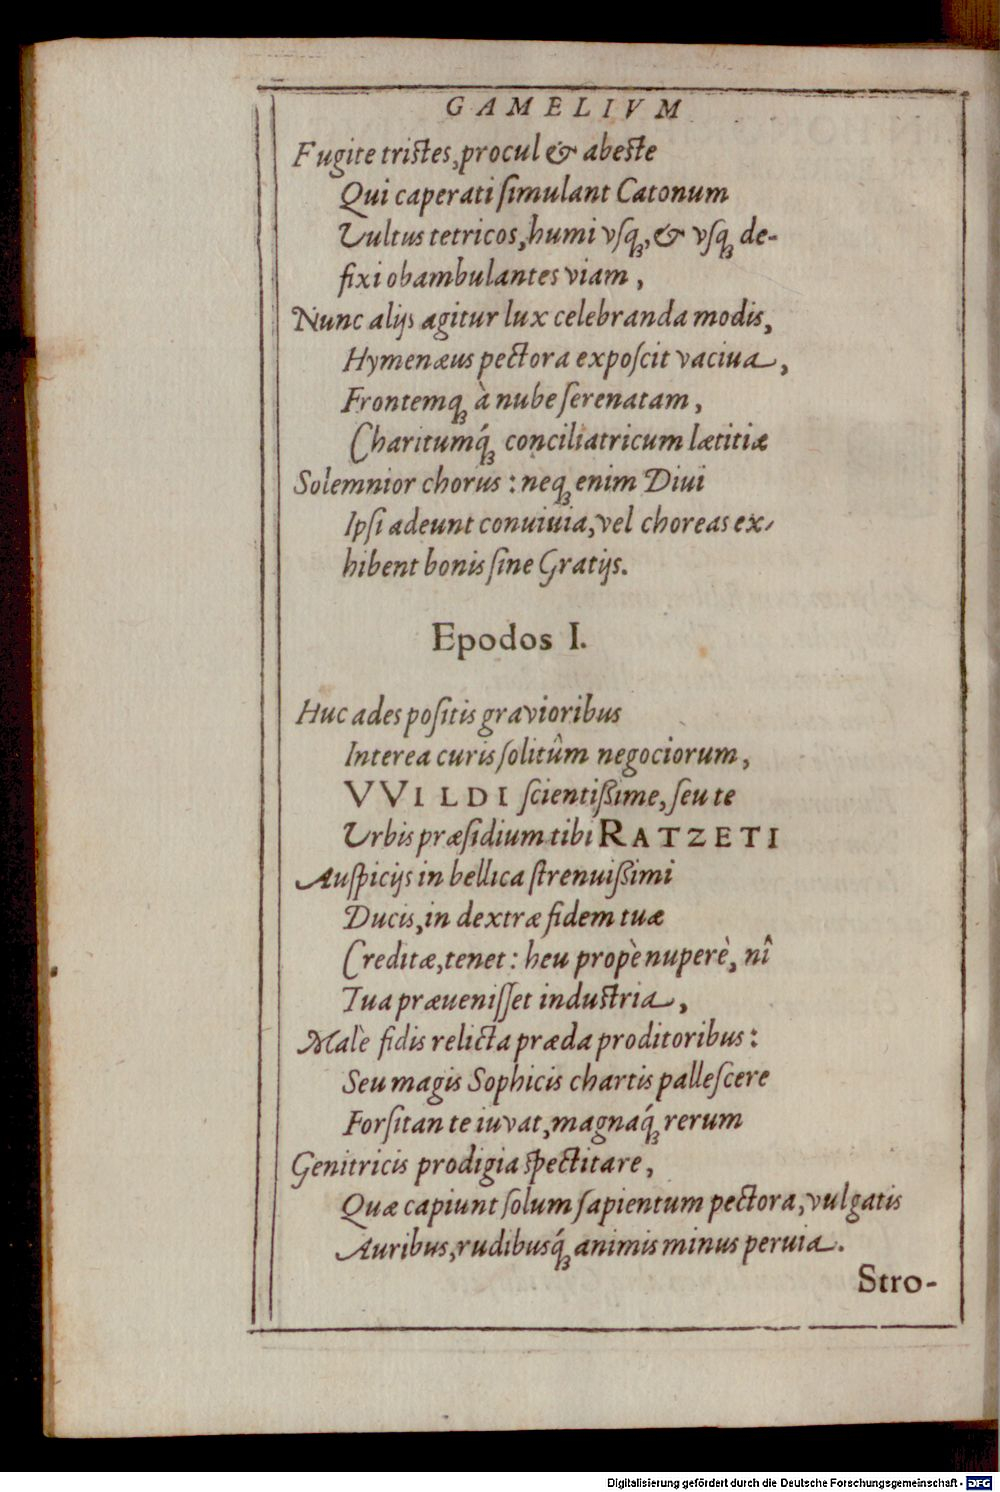 GAMELIVM
Fugite tristes, procul & abeste
Qui caperati ſimulant Catonum
Vultus tetricos, humi vſqꝫ, & vſqꝫ de-
fixi obambulantes viam,
Nunc alijs agitur lux celebranda modis,
Hymenæus pectora expoſcit vaciua,
Frontemqꝫ à nube ſerenatam,
Charitumq́ꝫ conciliatricum lætitiæ
Solemnior chorus: neqꝫ enim Diui
Ipſi adeunt conuiuia, vel choreas ex-
hibent bonis ſine Gratijs.
Epodos I.
Huc ades poſitis gravioribus
Interea curis ſolitûm negociorum,
VVILDI ſcientißime, ſeu te
Urbis præſidium tibi RATZETI
Auſpicijs in bellica ſtrenuißimi
Ducis, in dextræ fidem tuæ
Creditæ, tenet: heu propè nuperè, nî
Tua præueniſſet industria,
Malè fidis relicta præda proditoribus:
Seu magis Sophicis chartis palleſcere
Forſitan te iuvat, magnaq́ꝫ rerum
Genitricis prodigia ſpectitare,
Quæ capiunt ſolum ſapientum pectora, vulgatis
Auribus, rudibusq́ꝫ animis minus peruia.
Stro-
Digitalisierung gefördert durch die Deutsche Forschungsgemeinschaft - DFG